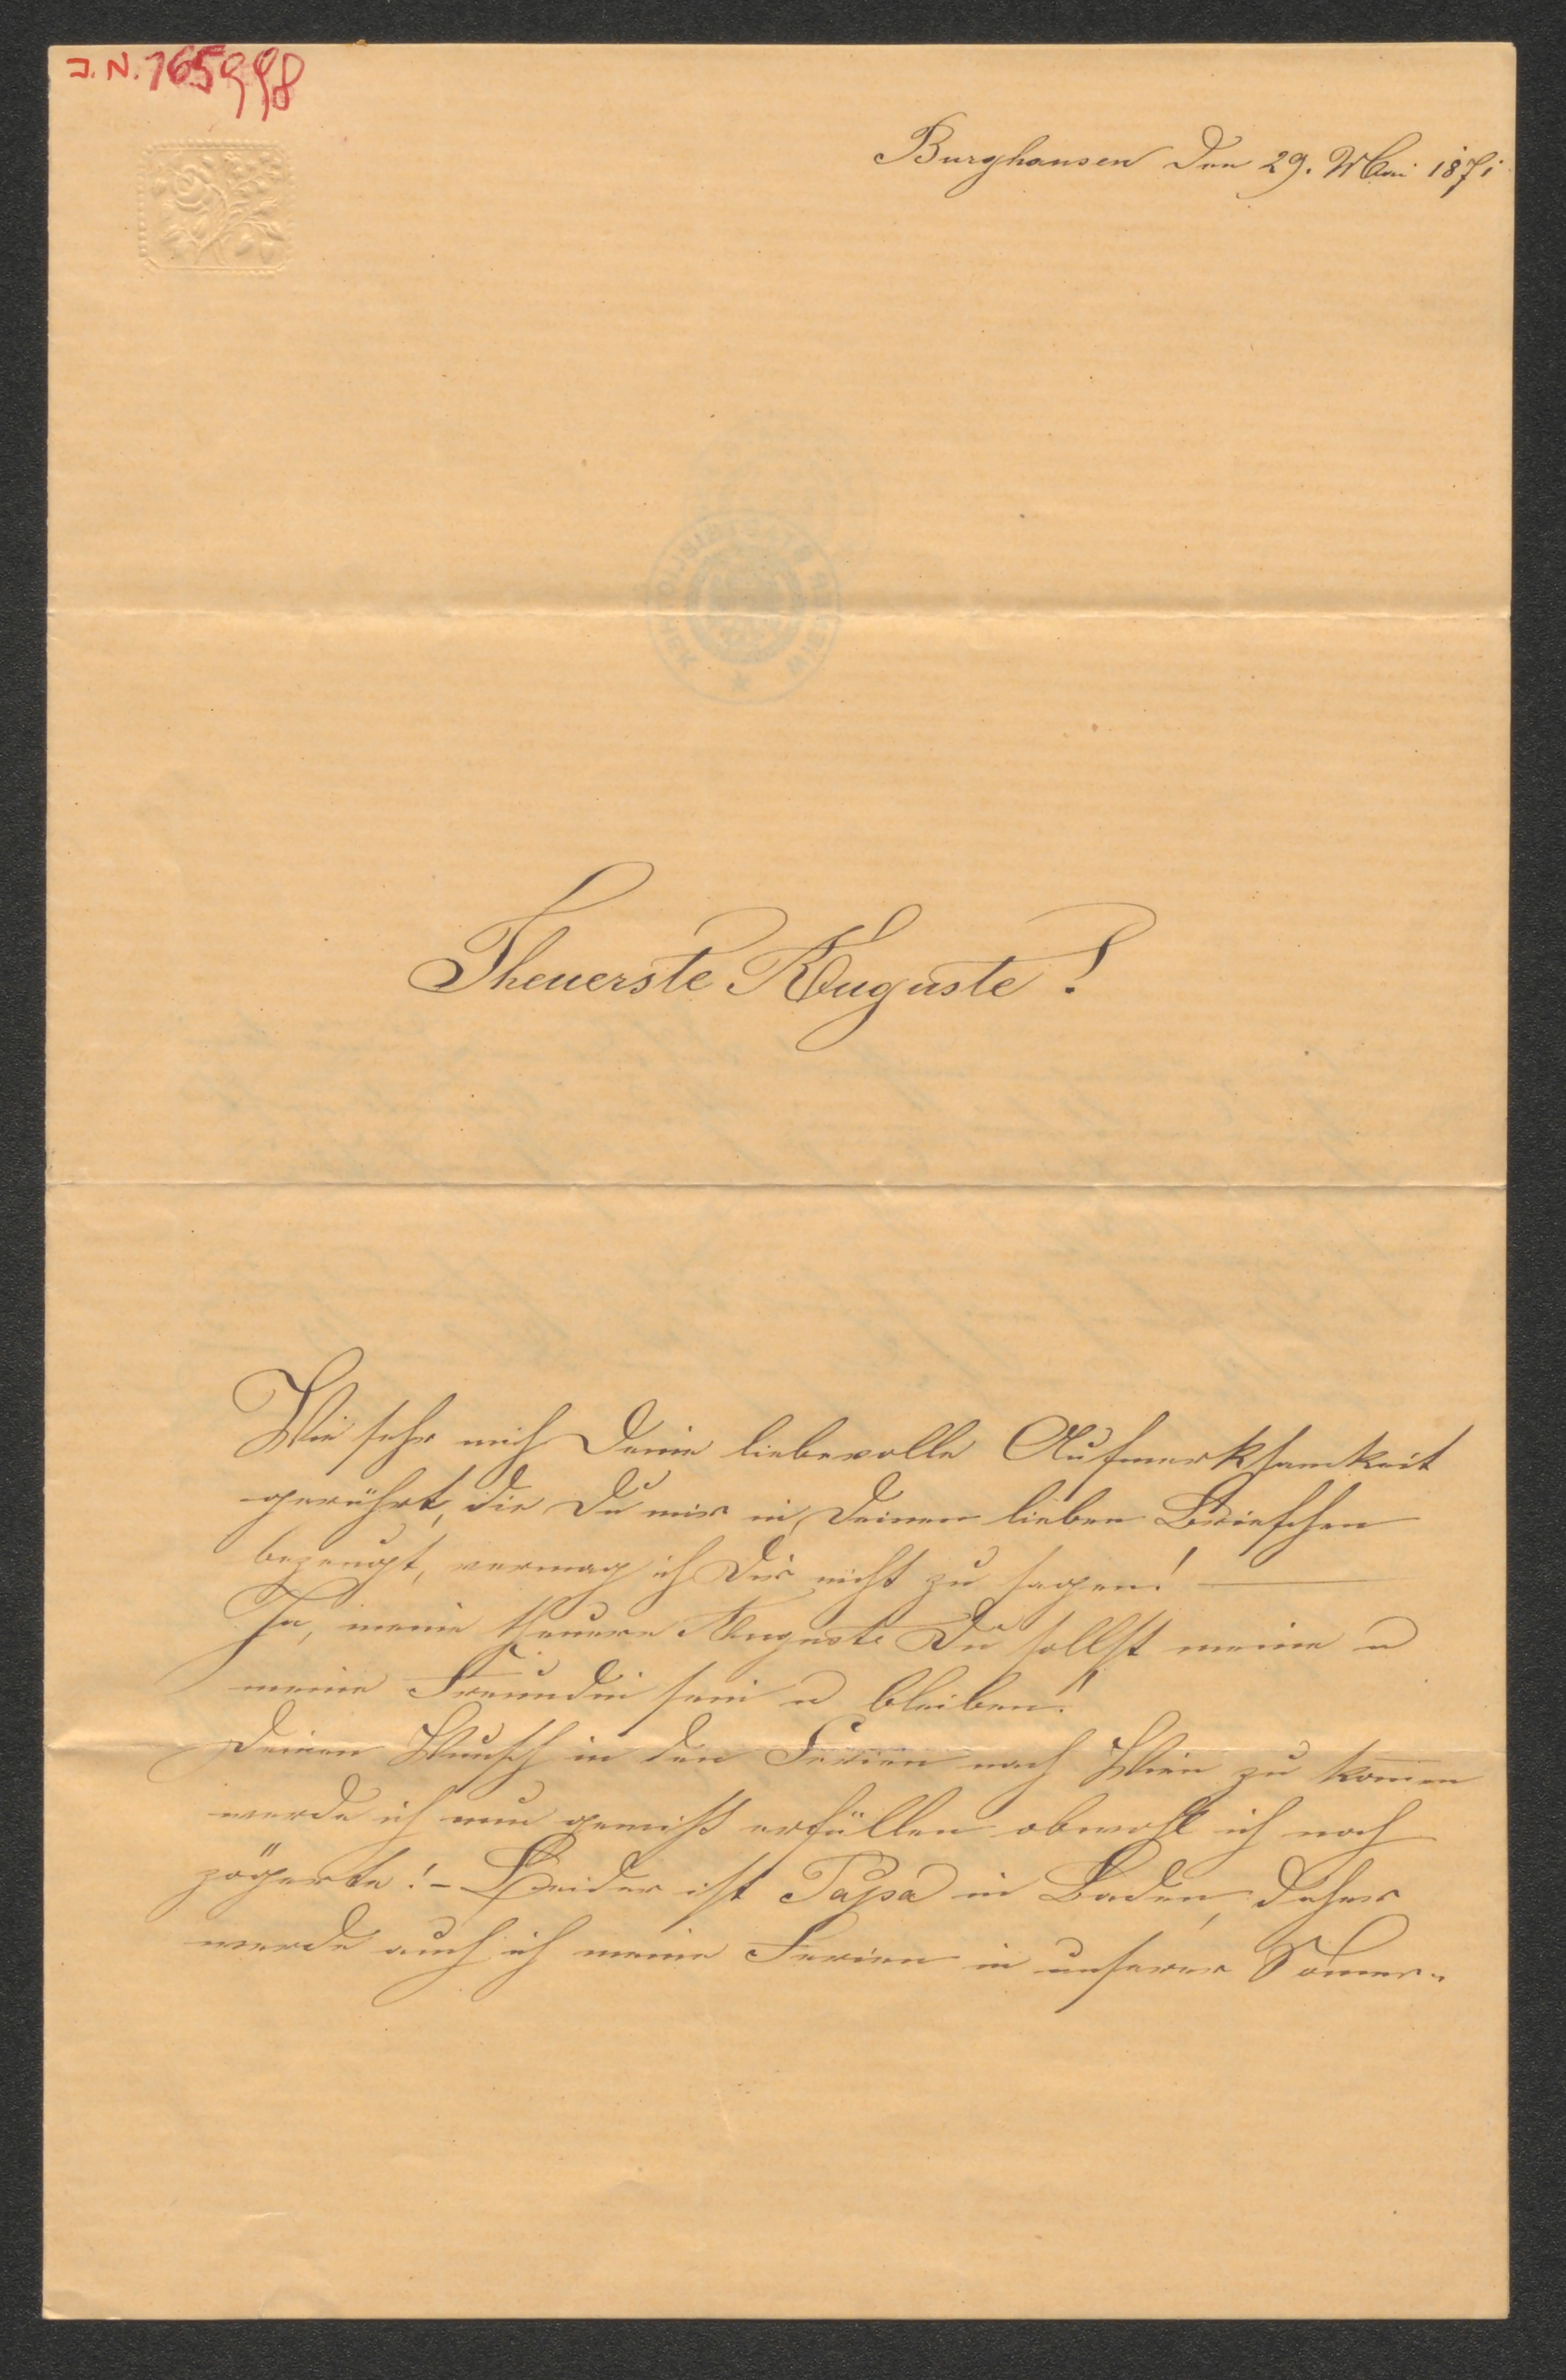 J.N. 165998
Burghausen den 29. Mai 1871
Theuerste Auguste!
Wie sehr mich Deine liebevolle Aufmerksamkeit
gerührt, die Du mir in Deinen lieben Briefchen
bezeugt, vermag ich Dir nicht zu sagen! —
Ja, meine theuere Auguste Du sollst meine u
meine Freundin sein u bleiben!
Deinen Wunsch in den Ferien nach Wien zu kom̄en
werde ich nun gewiß erfüllen obwohl ich noch
zögerte! – Leider ist Papa in Baden, daher
werde auch ich meine Ferien in unserer Som̄er-